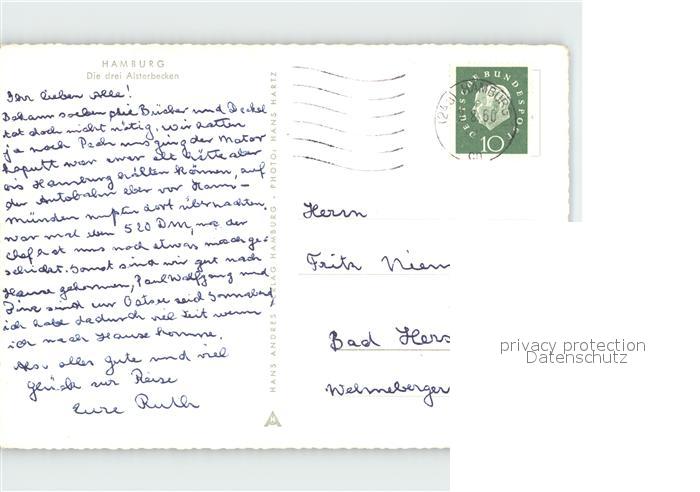 HAMBURG
Die drei Alsterbecken
Ihr lieben Alle!
Bekam soeben die Bücher und Deckel
tat doch nicht nötig, wir hatten
ja noch Pech uns ging der Motor
kaputt war zwar alt hätte aber
bis Hamburg halten können, auf
der Autobahn eber vor Hann-
münden mußten dort übernachten.
war mal eben 520 DM, na der
Chef hat uns noch etwas nachge-
schickt. Sonst sind wir gut nach
Hause gekommen, Paul Wolfgang und
sind zur Ostsee seid Sonnabend
ich habe dadurch viel Zeit wenn
ich nach Hause komme.
Also alles gute und viel
glück zur Reise
Eure Ruth
HANS ANDRES VERLAG HAMBURG · PHOTO: HANS HARTZ
DEUTSCHE BUNDESPOST
10
HAMBURG
60
Herrn
Fritz Niem
Bad Hers
Wehneberger
privacy protection
Datenschutz